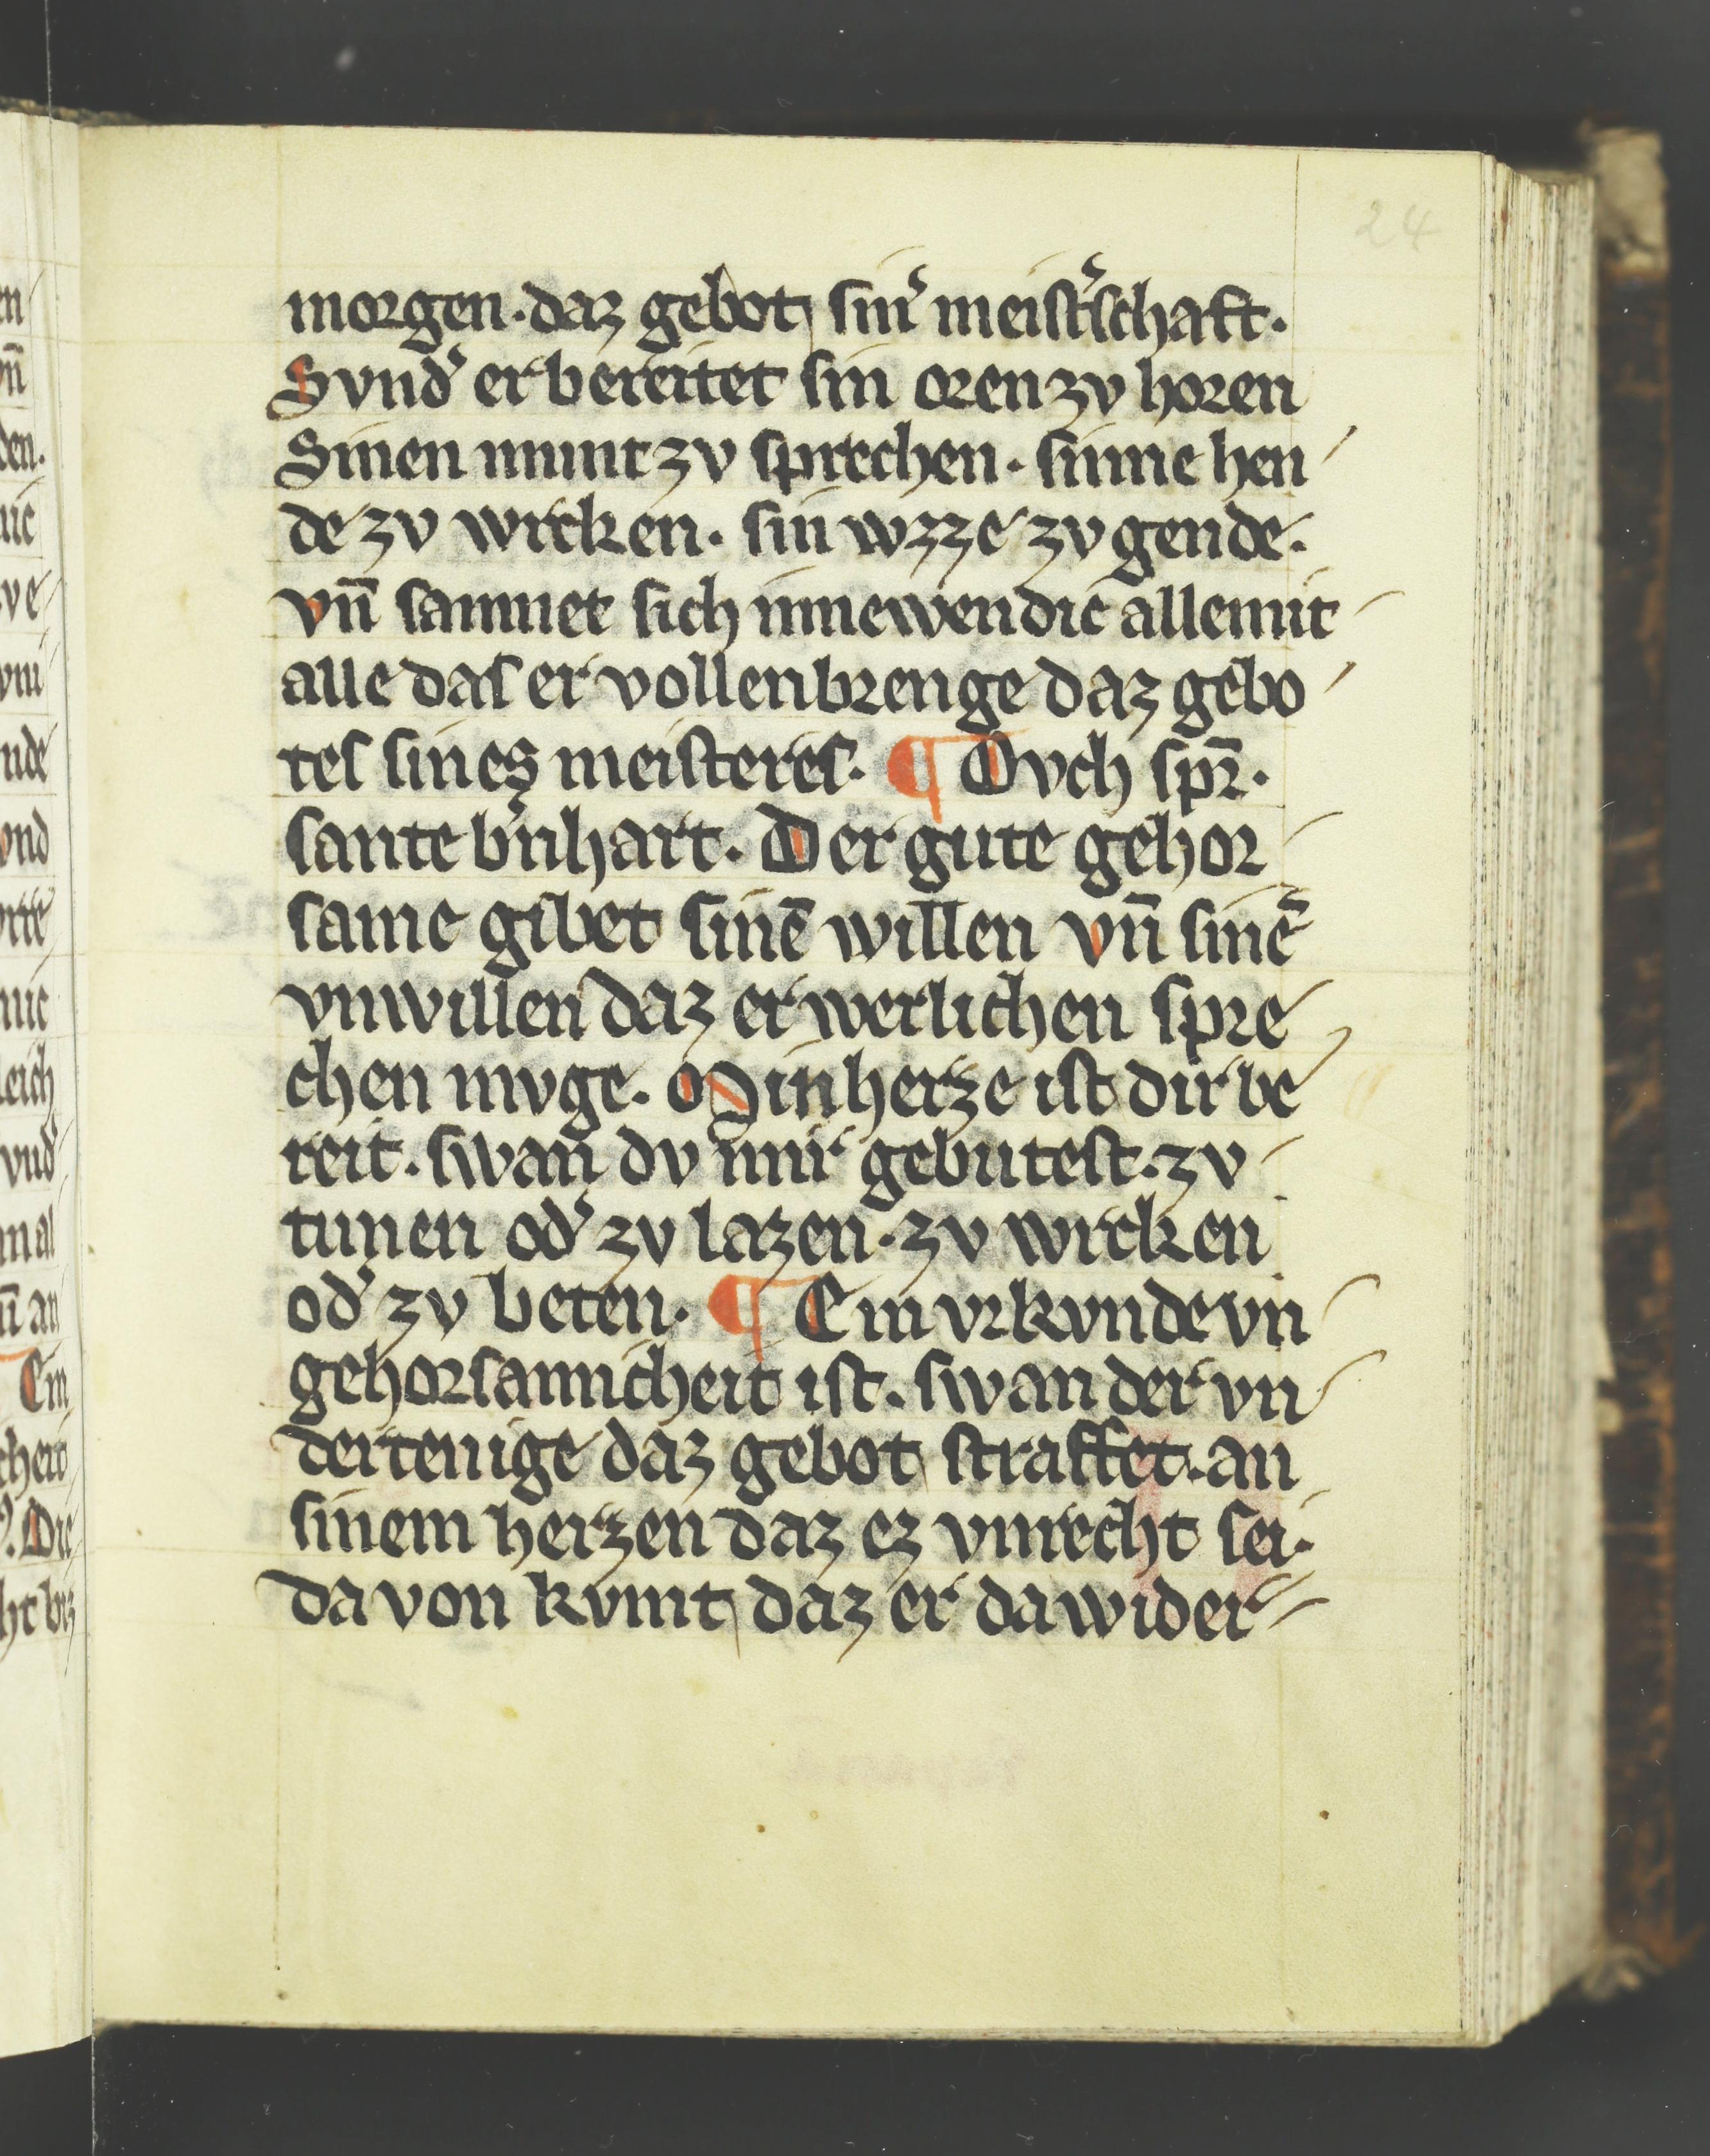 24
morgen. daz gebot sin͛ meist͛schaft.
Svnd͛ er bereitet sin oren zv horen
Sinen munt zv sprechen. sinne hen
de zv wirken. sin wzze zv gende.
vn̄ samnet sich innewendic allemit
alle das er vollenbrenge daz gebo
tes sines meisteres. ¶ Ovch spr̄.
sante b͛nhart. Der gute gehor
same gibet sinē willen vn̄ sinē
vnwillen daz er werlichen spre
chen mvge. Min herze ist dir be
reit. swan dv mir gebutest. zv
tunen od͛ zv lazen. zv wirken
od͛ zv beten. ¶ Ein vrkvnde vn
gehorsamicheit ist. swan der vn
dertenige daz gebot straffet. an
sinem herzen daz ez vnrecht sei.
da von kvmt daz er da wider